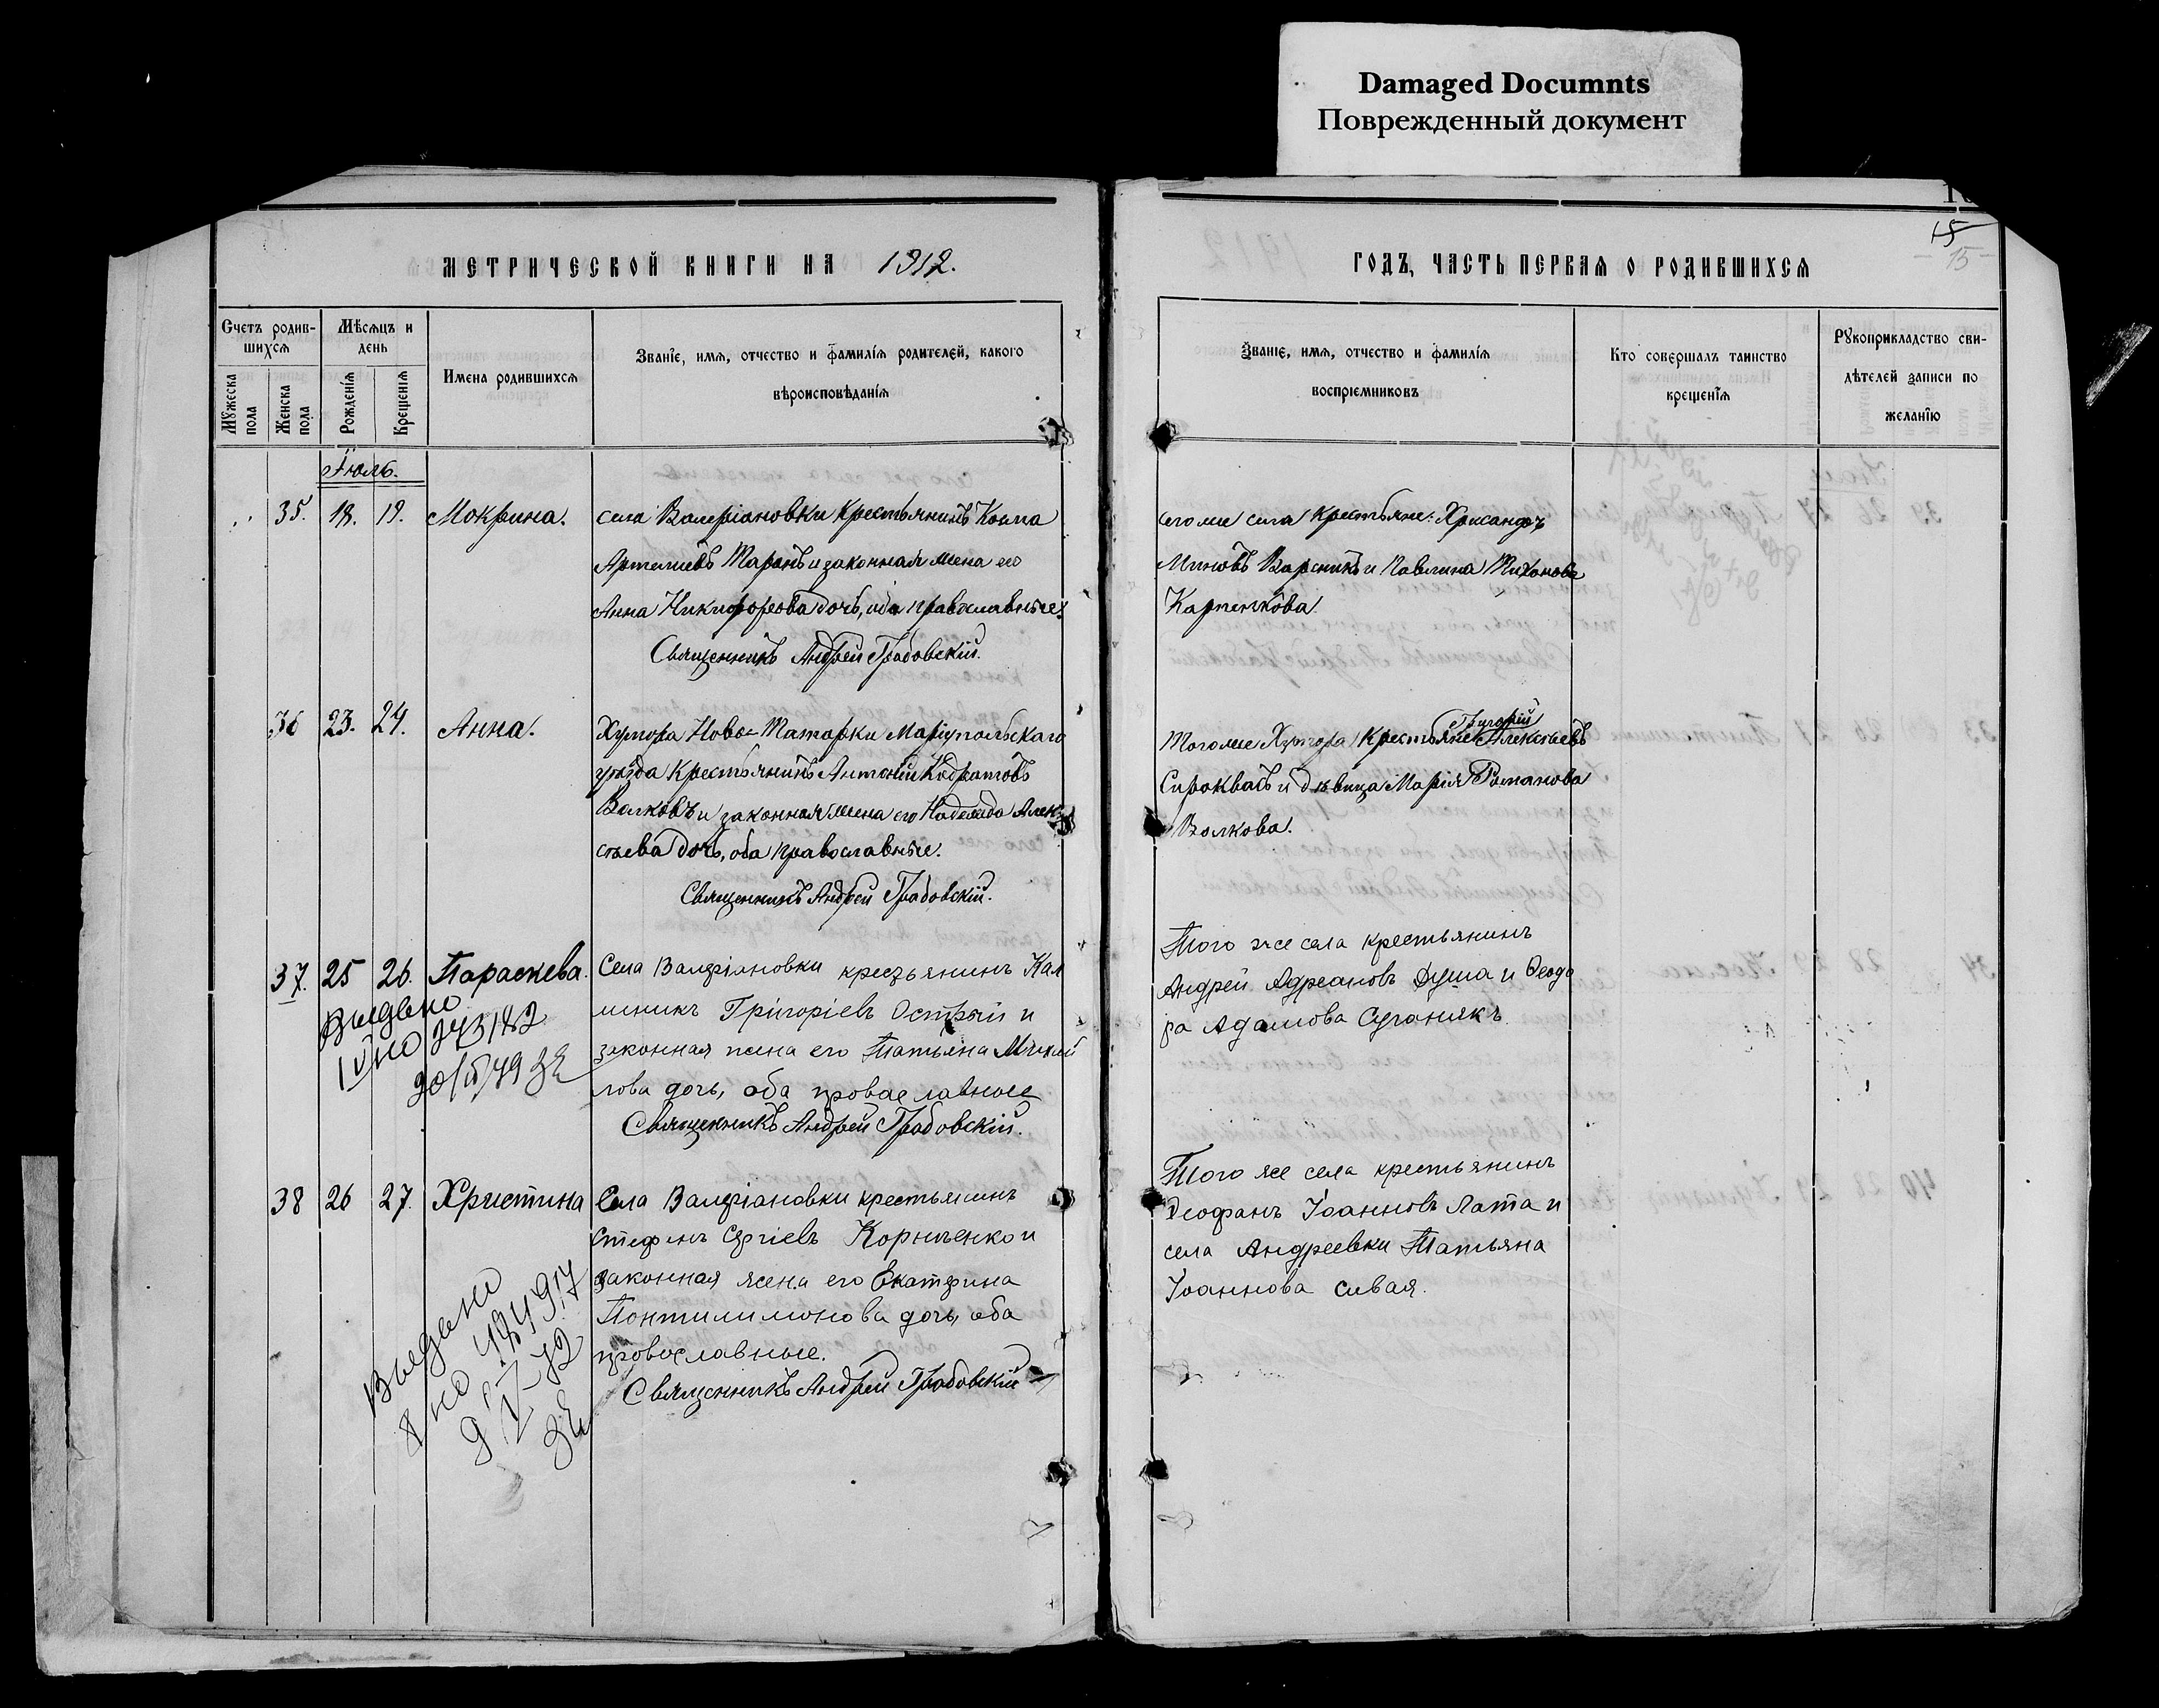 Damaged Documnts
Поврежденный документ
МЕТРИЧЕСКОЙ КНИГИ НА 1912.
Счетъ родив-
шихся
Мѣсяцъ и
день
Мужеска
пола
Женска
пола
Рожденія
Крещенія
Имена родившихся
Званіе, имя, отчество и фамилія родителей, какого
вѣроисповѣданія
Іюль.
35. 18. 19. Мокрина.
села Валеріановки крестьянинъ Косма
Артемиевъ Таранъ и законная жена его
Анна Никифорова дочь, оба православные.
Священникъ Андрей Грабовскій.
36 23. 24. Анна.
Хутора Ново-Татарки Маріупольскаго
уѣзда крестьянинъ Антоній Кодратовъ
Волковъ и законная жена его Надежда Алек-
сѣева дочь, оба православные.
Священникъ Андрей Грабовскій.
37. 25 26. Параскева.
Села Валеріановки крестьянинъ Кал
линикъ Григоріевъ и
законная жена его Татьяна Михай
лова дочь, оба православные
Священникъ Андрей Грабовскій.
Выдано
38 26 27. Христина
Села Валеріановки крестьянинъ
Стефанъ Сергіевъ Корниенко и
законная жена его Екатерина
Понтилимонова дочь, оба
православные.
Священникъ Андрей Грабовскій
Выдано
ГОДЪ, ЧАСТЬ ПЕРВАЯ О РОДИВШИХСЯ
15
15
Званіе, имя, отчество и фамилія
воспріемниковъ
Кто совершалъ таинство
крещенія
Рукоприкладство сви-
дѣтелей записи по
желанію
сего же села крестьяне: Хрисанфъ
Миновъ и Павлина Тихонова
Карпенкова.
Григорій
Того же Хутора крестьяне Алексѣевъ
Сироквасъ и дѣвица Марія Романова
Волкова.
Того же села крестьянинъ
Андрей Адреановъ Душа и Феодо
ра Адамова Суганякъ.
Того же села крестьянинъ
Феофанъ Іоанновъ Лата и
села Андреевки Татьяна
Іоаннова Сивая.